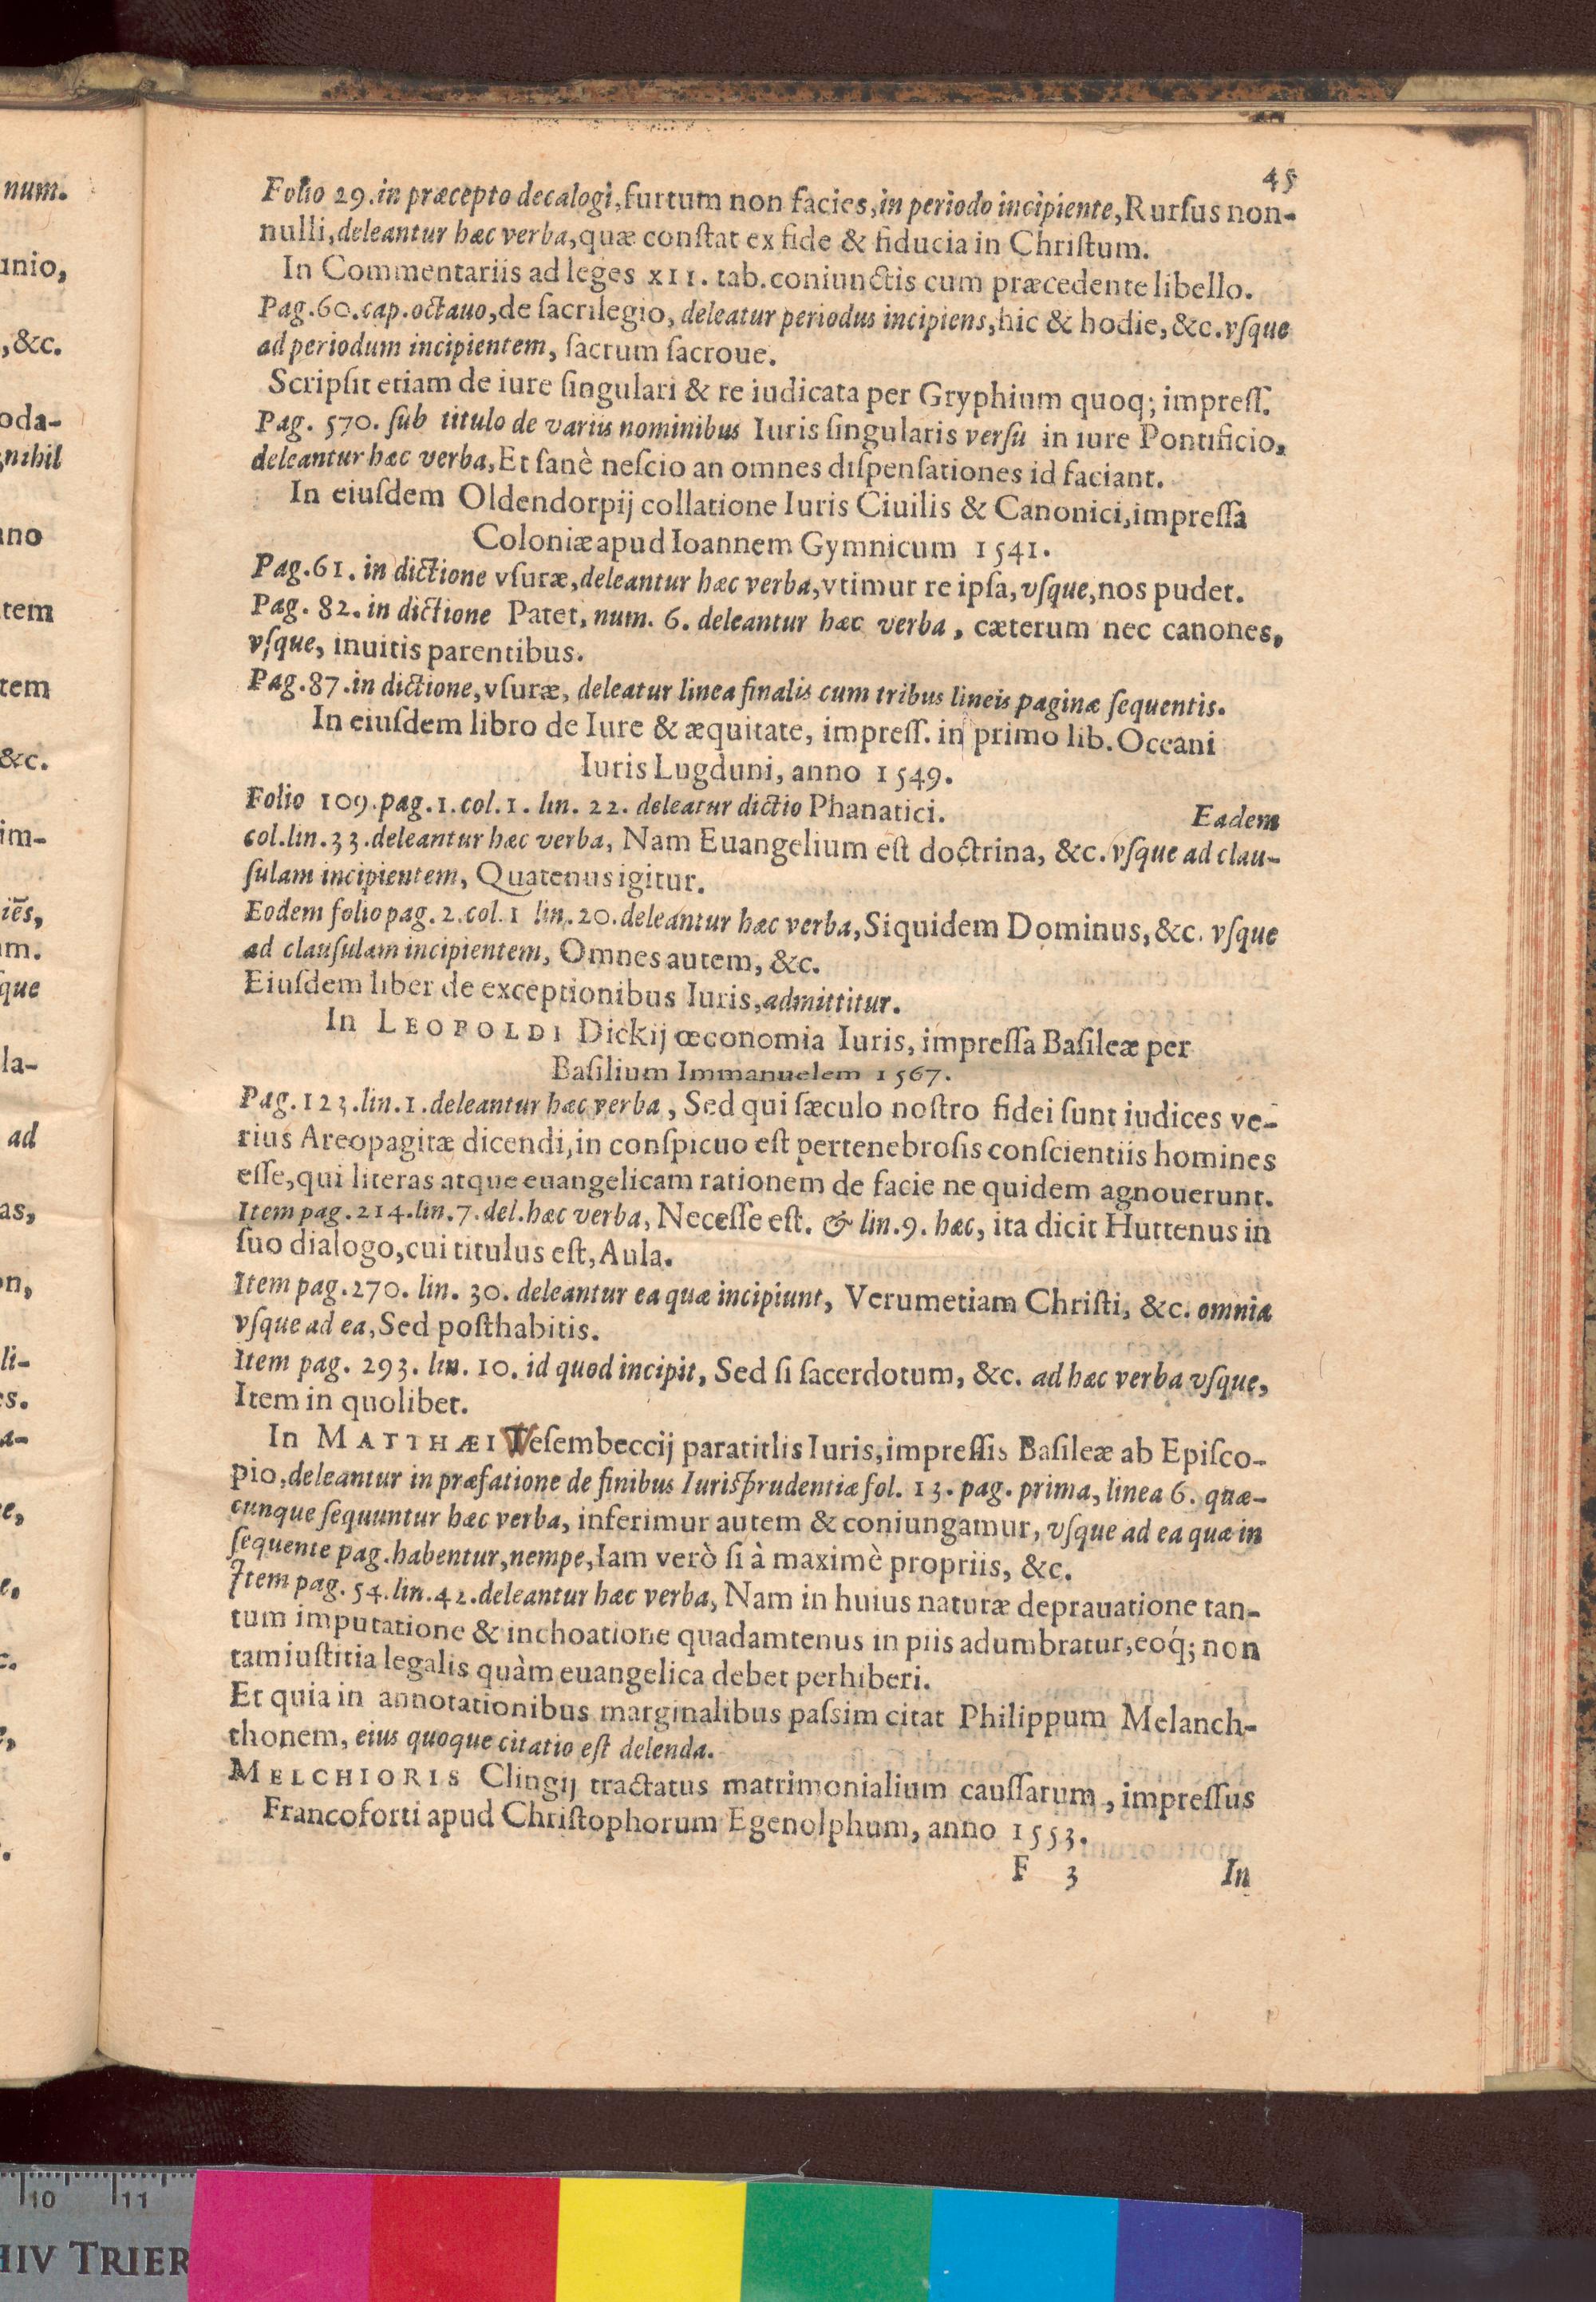 num.
unio,
,&c.
oda-
nihil
ano
tem
tem
&c.
im-
iēs,
m.
que
la-
ad
as,
on,
li-
es.
a-
e,
e,
c.
e,
.
45
Folio 29.in præcepto decalogi,furtum non facies,in periodo incipiente,Rurſus non-
nulli,deleantur hæc verba,quæ conſtat ex fide & fiducia in Chriſtum.
In Commentariis ad leges XII. tab.coniunctis cum præcedente libello.
Pag.60.cap.octauo,de ſacrilegio, deleatur periodus incipiens,hic & hodie,&c.vſque
ad periodum incipientem, ſacrum ſacroue.
Scripſit etiam de iure ſingulari & re iudicata per Gryphium quoq; impreſſ.
Pag. 570. ſub titulo de variis nominibus Iuris ſingularis verſu in iure Pontificio,
deleantur hæc verba,Et ſanè neſcio an omnes diſpenſationes id faciant.
In eiuſdem Oldendorpij collatione Iuris Ciuilis & Canonici,impreſſa
Coloniæ apud Ioannem Gymnicum 1541.
Pag.61. in dictione vſuræ,deleantur hæc verba,vtimur re ipſa,vſque,nos pudet.
Pag. 82. in dictione Patet, num. 6. deleantur hæc verba, cæterum nec canones,
vſque, inuitis parentibus.
Pag.87.in dictione,vſuræ, deleatur linea finalis cum tribus lineis paginæ ſequentis.
In eiuſdem libro de Iure & æquitate, impreſſ. in primo lib. Oceani
Iuris Lugduni, anno 1549.
Folio 109.pag.1.col.1. lin. 22. deleatur dictio Phanatici. Eadem
col.lin.33.deleantur hæc verba, Nam Euangelium eſt doctrina, &c.vſque ad clau-
ſulam incipientem, Quatenus igitur.
Eodem folio pag. 2.col.1 lin.20.deleantur hæc verba,Siquidem Dominus,&c. vſque
ad clauſulam incipientem, Omnes autem, &c.
Eiuſdem liber de exceptionibus Iuris,admittitur.
In LEOPOLDI Dickij œconomia Iuris, impreſſa Baſileæ per
Baſilium Immanuelem 1567.
Pag.123.lin.1.deleantur hæc verba, Sed qui ſæculo noſtro fidei ſunt iudices ve-
rius Areopagitæ dicendi,in conſpicuo eſt pertenebroſis conſcientiis homines
eſſe,qui literas atque euangelicam rationem de facie ne quidem agnouerunt.
Item pag.214.lin.7.del.hæc verba, Neceſſe eſt. & lin.9. hæc, ita dicit Huttenus in
ſuo dialogo,cui titulus eſt,Aula.
Item pag.270. lin. 30. deleantur ea quæ incipiunt, Verumetiam Chriſti, &c. omnia
vſque ad ea,Sed poſthabitis.
Item pag. 293. lin. 10. id quod incipit, Sed ſi ſacerdotum, &c. ad hæc verba vſque,
Item in quolibet.
In MATTHÆI Weſembeccij paratitlis Iuris,impreſſis Baſileæ ab Epiſco-
pio,deleantur in præfatione de finibus Iuriſprudentiæ fol. 13. pag. prima, linea 6. quæ-
cunque ſequuntur hæc verba, inferimur autem & coniungamur, vſque ad ea quæ in
ſequente pag.habentur,nempe,Iam verò ſi à maximè propriis, &c.
Item pag. 54.lin.42.deleantur hæc verba, Nam in huius naturæ deprauatione tan-
tum imputatione & inchoatione quadamtenus in piis adumbratur,eoq́; non
tam iuſtitia legalis quàm euangelica debet perhiberi.
Et quia in annotationibus marginalibus paſsim citat Philippum Melanch-
thonem, eius quoque citatio eſt delenda.
MELCHIORIS Clingij tractatus matrimonialium cauſſarum, impreſſus
Francoforti apud Chriſtophorum Egenolphum, anno 1553.
F 3 In
10 11
HIV TRIER